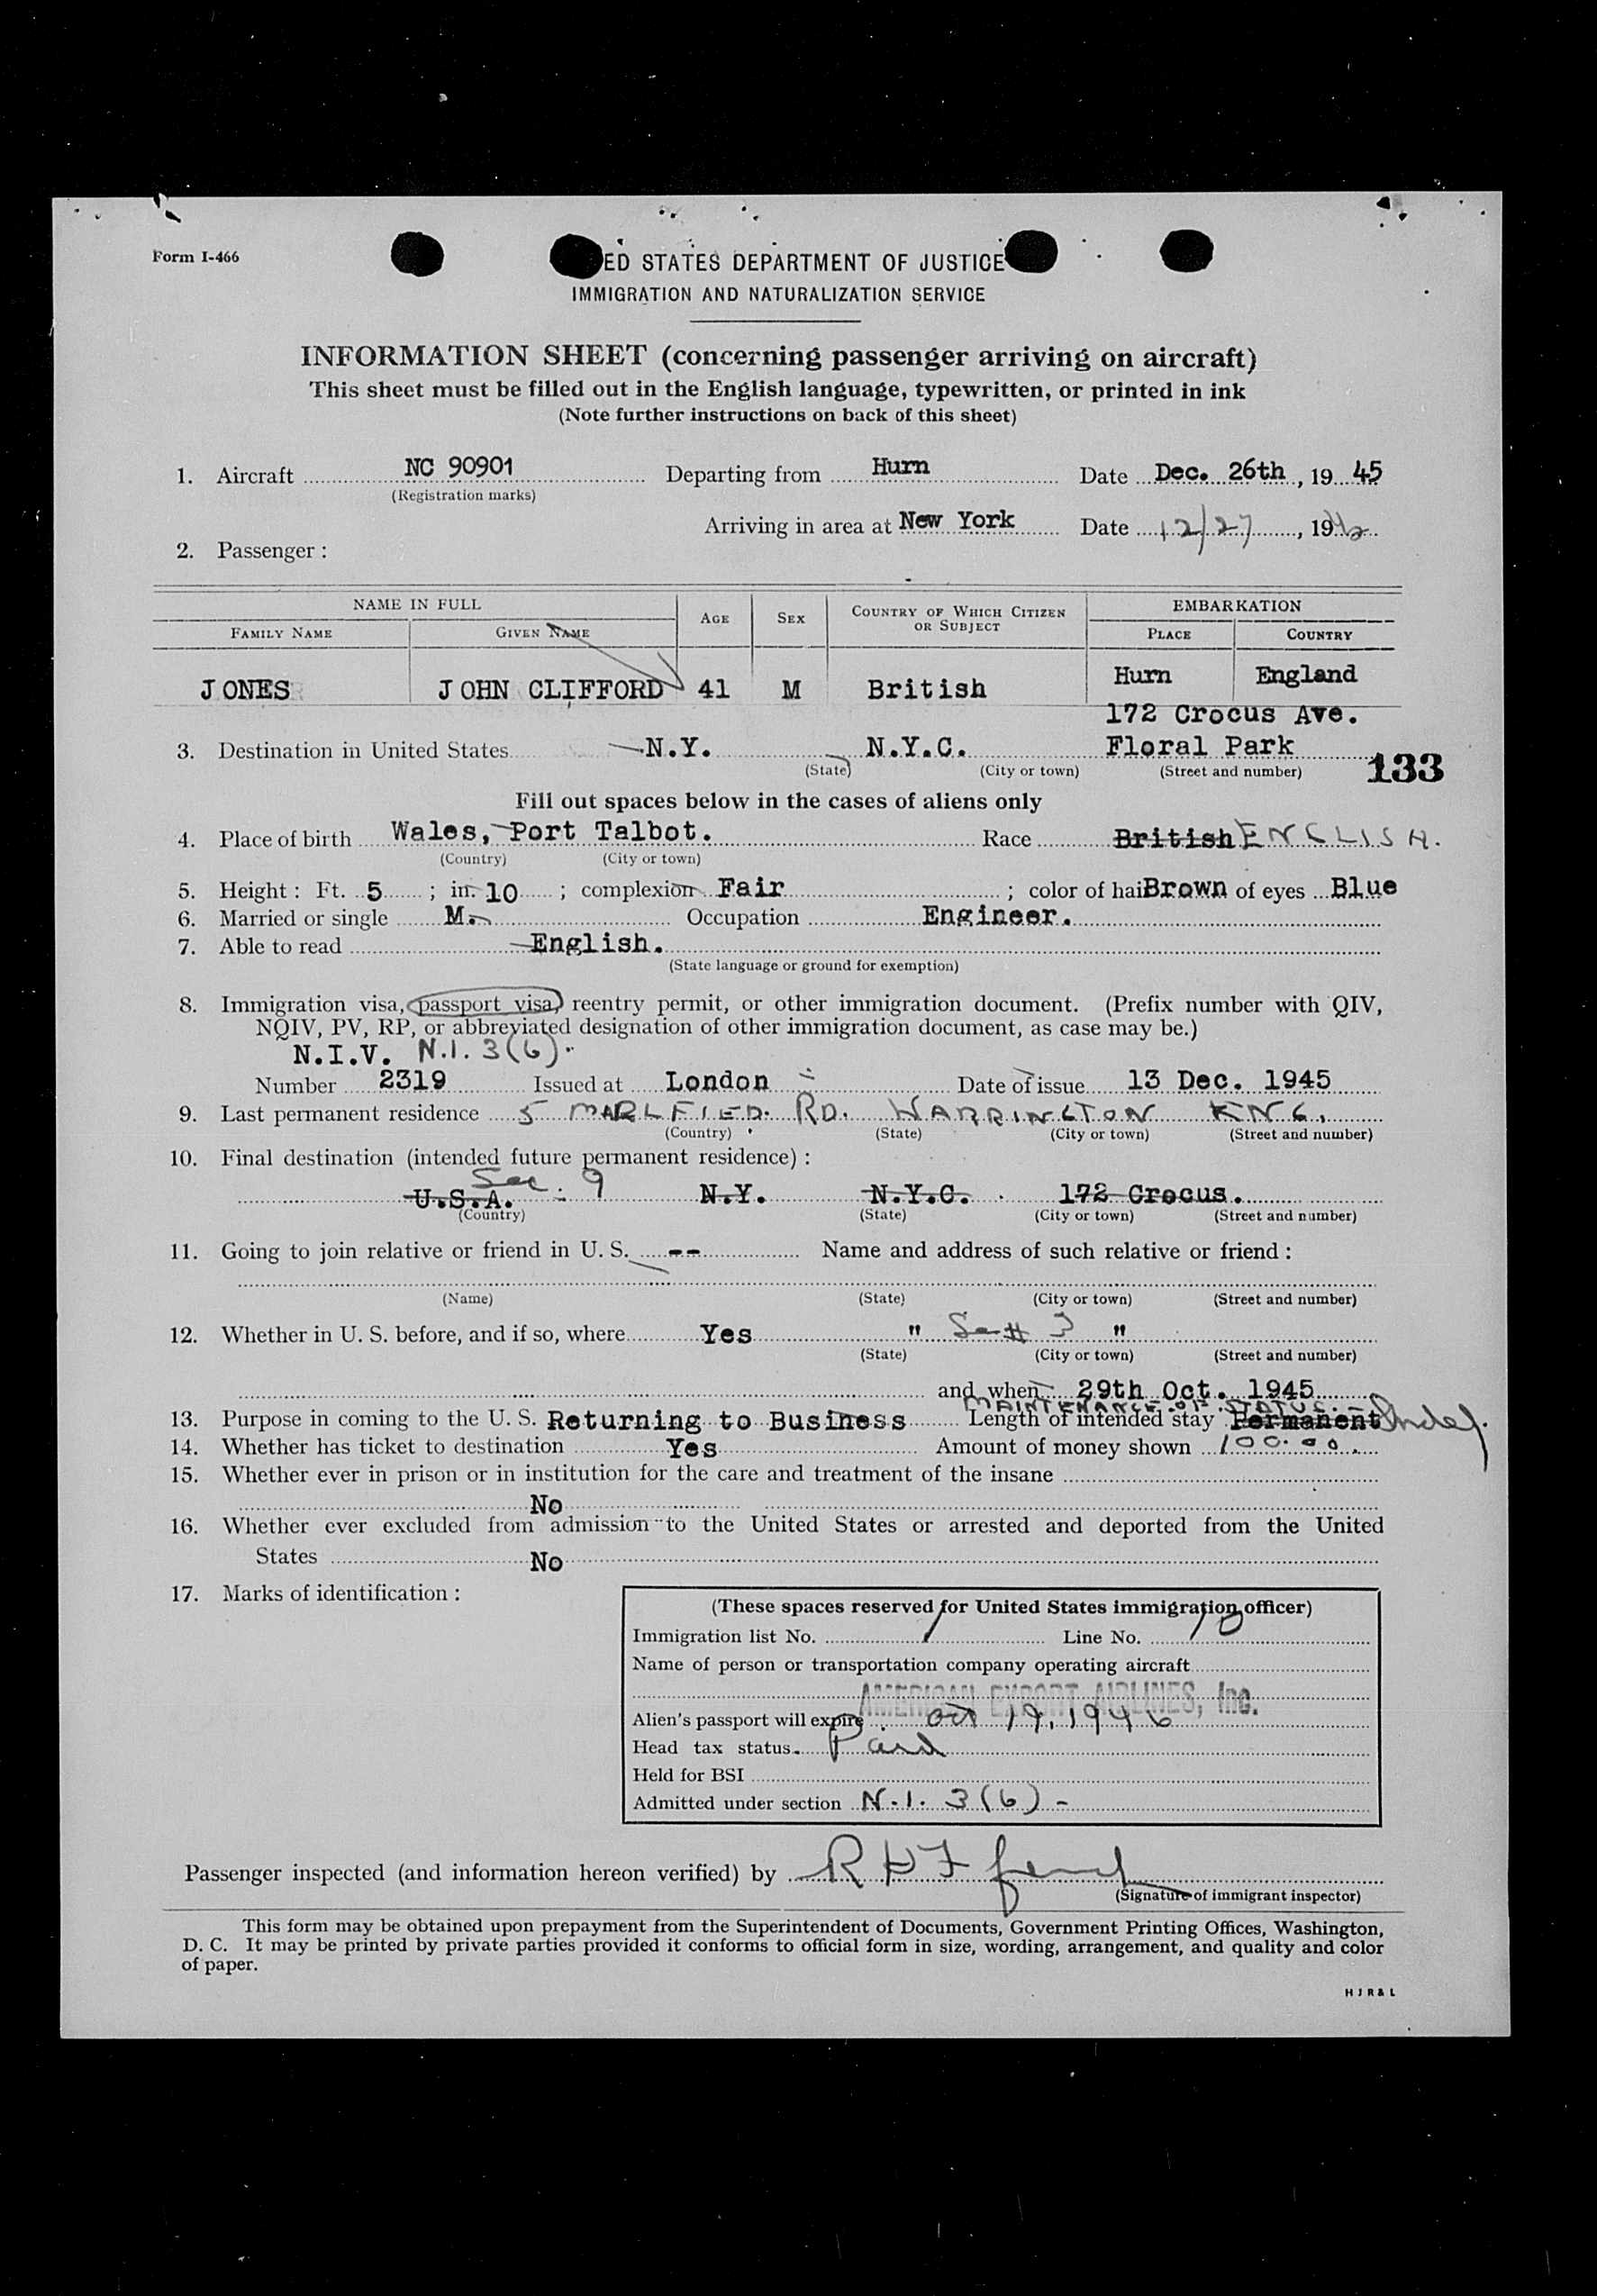 Form I-466
ED STATES DEPARTMENT OF JUSTICE
IMMIGRATION AND NATURALIZATION SERVICE
INFORMATION SHEET (concerning passenger arriving on aircraft)
This sheet must be filled out in the English language, typewritten, or printed in ink
(Note further instructions on back of this sheet)
1. Aircraft NC 90901 Departing from Hurn Date Dec. 26th, 19 45
(Registration marks)
Arriving in area at New York Date 12/27, 19
2. Passenger:
NAME IN FULL AGE SEX COUNTRY OF WHICH CITIZEN OR SUBJECT EMBARKATION
FAMILY NAME GIVEN NAME PLACE COUNTRY
JONES JOHN CLIFFORD 41 M British Hurn England
172 Crocus Ave.
3. Destination in United States N.Y. N.Y.C. Floral Park 133
(State) (City or town) (Street and number)
Fill out spaces below in the cases of aliens only
4. Place of birth Wales, Port Talbot. Race British ENGLISH.
(Country) (City or town)
5. Height: Ft. 5; in. 10; complexion Fair; color of hai Brown of eyes Blue
6. Married or single M. Occupation Engineer.
7. Able to read English.
(State language or ground for exemption)
8. Immigration visa, passport visa, reentry permit, or other immigration document. (Prefix number with QIV,
NQIV, PV, RP, or abbreviated designation of other immigration document, as case may be.)
N.I.V. N.I. 3(6).
Number 2319 Issued at London Date of issue 13 Dec. 1945
9. Last permanent residence 5 RD. WARRINGTON ENG.
(Country) (State) (City or town) (Street and number)
10. Final destination (intended future permanent residence):
See: 9
U.S.A. N.Y. N.Y.C. 172 Crocus.
(Country) (State) (City or town) (Street and number)
11. Going to join relative or friend in U. S. -- Name and address of such relative or friend:
(Name) (State) (City or town) (Street and number)
12. Whether in U. S. before, and if so, where Yes " See # 3 "
(State) (City or town) (Street and number)
and when 29th Oct. 1945
MAINTENANCE OF STATUS.-
13. Purpose in coming to the U. S. Returning to Business Length of intended stay Permanent Indef.
14. Whether has ticket to destination Yes Amount of money shown 100.00.
15. Whether ever in prison or in institution for the care and treatment of the insane
No
16. Whether ever excluded from admission to the United States or arrested and deported from the United
States No
17. Marks of identification:
(These spaces reserved for United States immigration officer)
Immigration list No. 1 Line No. 10
Name of person or transportation company operating aircraft
AMERICAN EXPORT AIRLINES, Inc.
Alien's passport will expire Oct 19, 1946
Head tax status Paid
Held for BSI
Admitted under section N.I. 3(6)-
Passenger inspected (and information hereon verified) by
(Signature of immigrant inspector)
This form may be obtained upon prepayment from the Superintendent of Documents, Government Printing Offices, Washington,
D. C. It may be printed by private parties provided it conforms to official form in size, wording, arrangement, and quality and color
of paper.
H J R & L